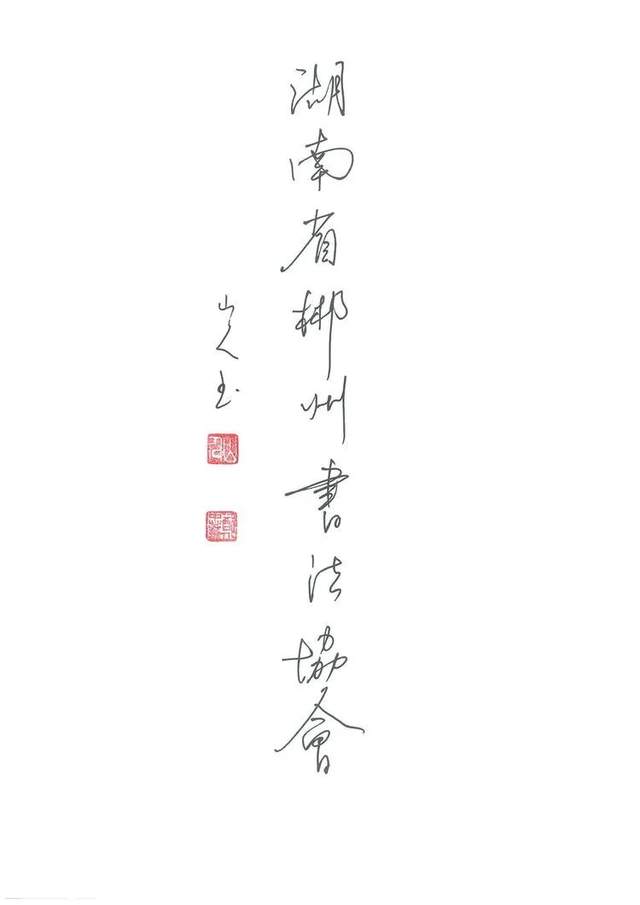 湖南省郴州書法協會
山人玉